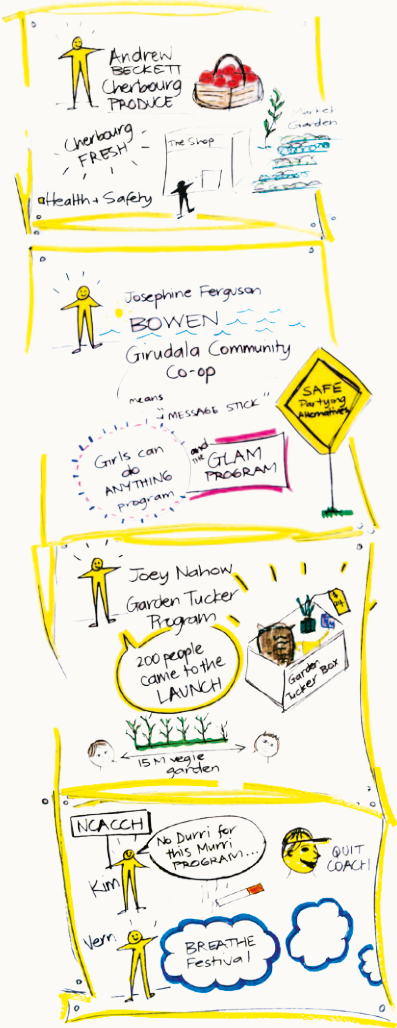 Andrew
BECKETT
Cherbourg
PRODUCE
Cherbourg
FRESH
The Shop
Market
Garden
Health + Safety
Josephine Ferguson
BOWEN
Girudala Community
Co-op
means
"MESSAGE STICK"
Girls can
do
ANYTHING
program
and
the
GLAM
PROGRAM
SAFE
Partying
Alternatives
Joey Nahow
Garden Tucker
Program
200 people
came to the
LAUNCH
Garden
Tucker Box
15 M vegie
garden
NCACCH
No Durri for
this Murri
PROGRAM...
Kim
QUIT
COACH
Vern
BREATHE
Festival